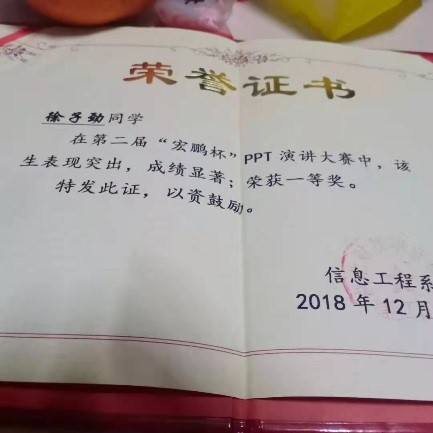 荣誉证书
徐子劲同学
在第二届“宏鹏杯”PPT演讲大赛中，该
生表现突出，成绩显著；荣获一等奖。
特发此证，以资鼓励。
信息工程系
2018年12月